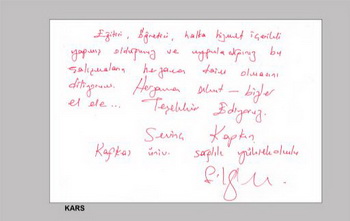 Eğitici, Öğretici, halka hizmet içerikli
yapmış olduğunuz ve uyguladığınız bu
çalışmaların herzaman daim olmasını
diliyorum. Herzaman umut - bizler
el ele... Teşekkür Ediyoruz.
Sevinç Kaptan
Kafkas üniv. sağlık yüksekokulu
KARS